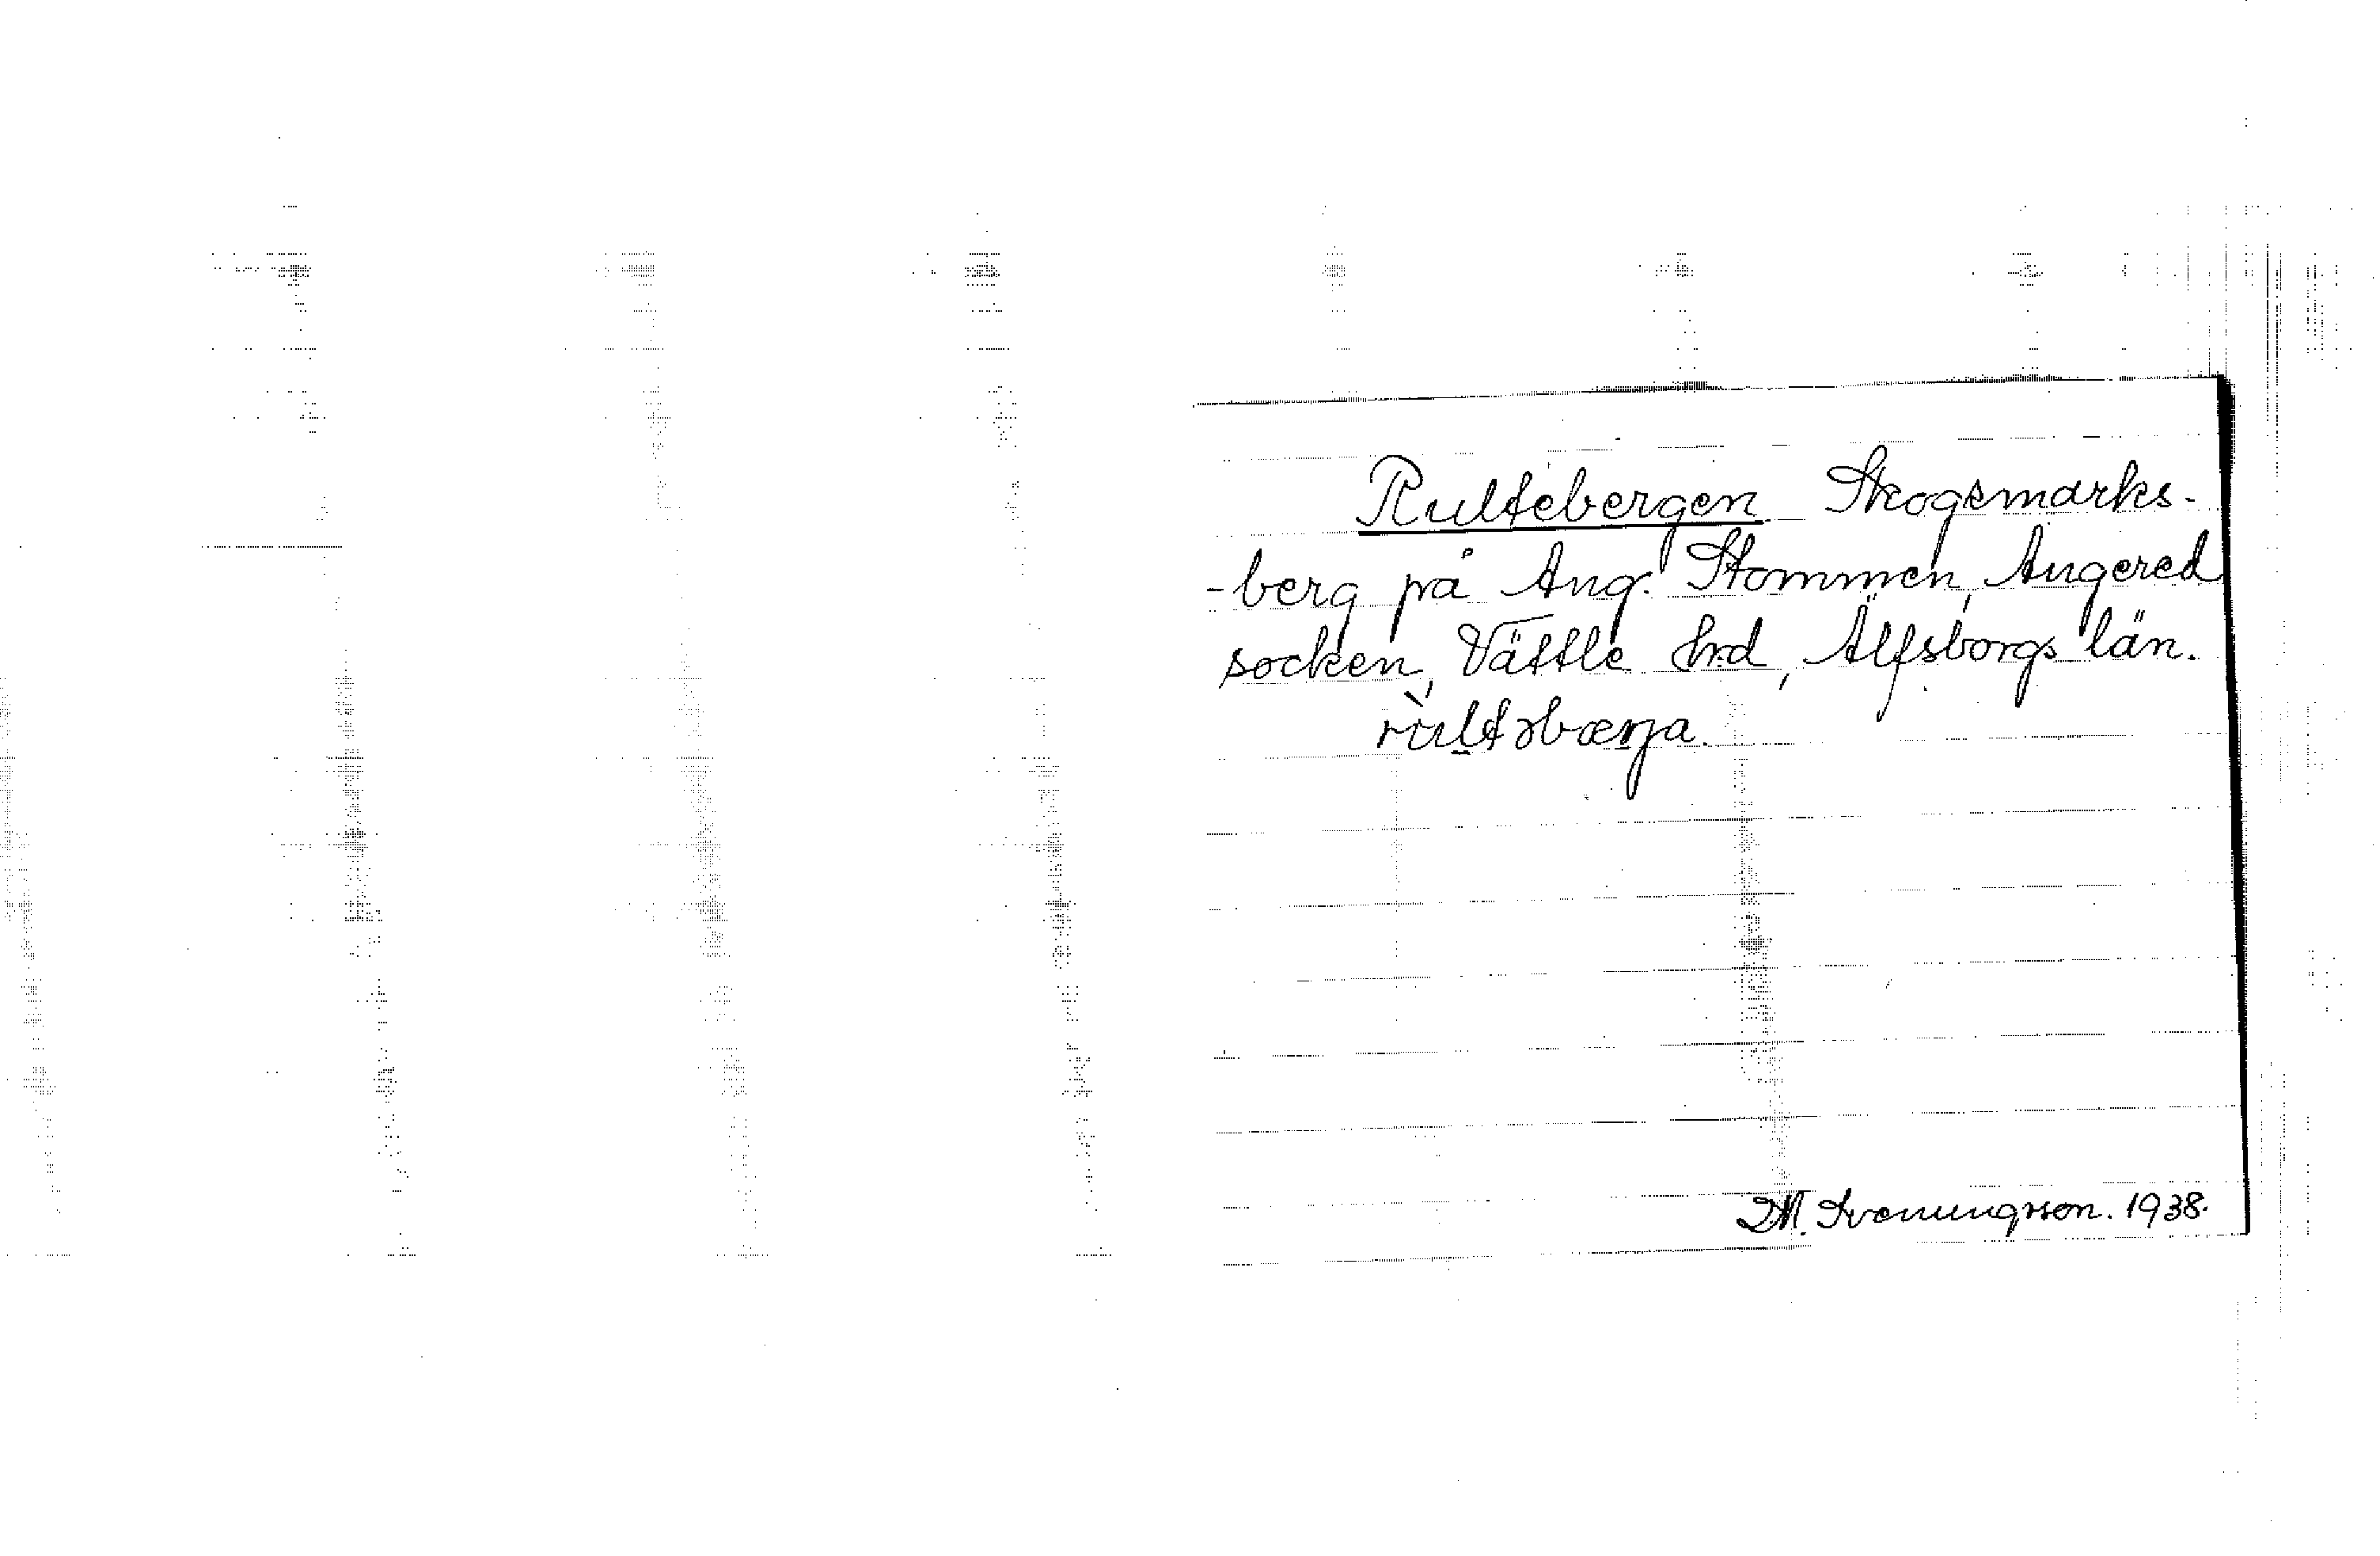 Rultebergen Skogsmarks-
-berg på Ang. Stommen, Angered
socken, Vättle hrd, Älfsborgs län.
rùltəbærja.
M. Svenungsson. 1938.